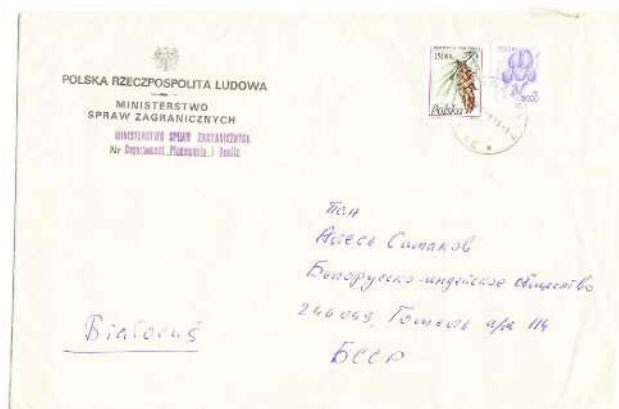 POLSKA RZECZPOSPOLITA LUDOWA
MINISTERSTWO
SPRAW ZAGRANICZNYCH
MINISTERSTWO SPRAW ZAGRANICZNYCH
Nr Departament Planowania i Analiz
1500 ZŁ
Polska
5000
Пан
Алесь Симаков
Белорусско-индейское общество
246049, Гомель а/я 114
БССР
Białoruś